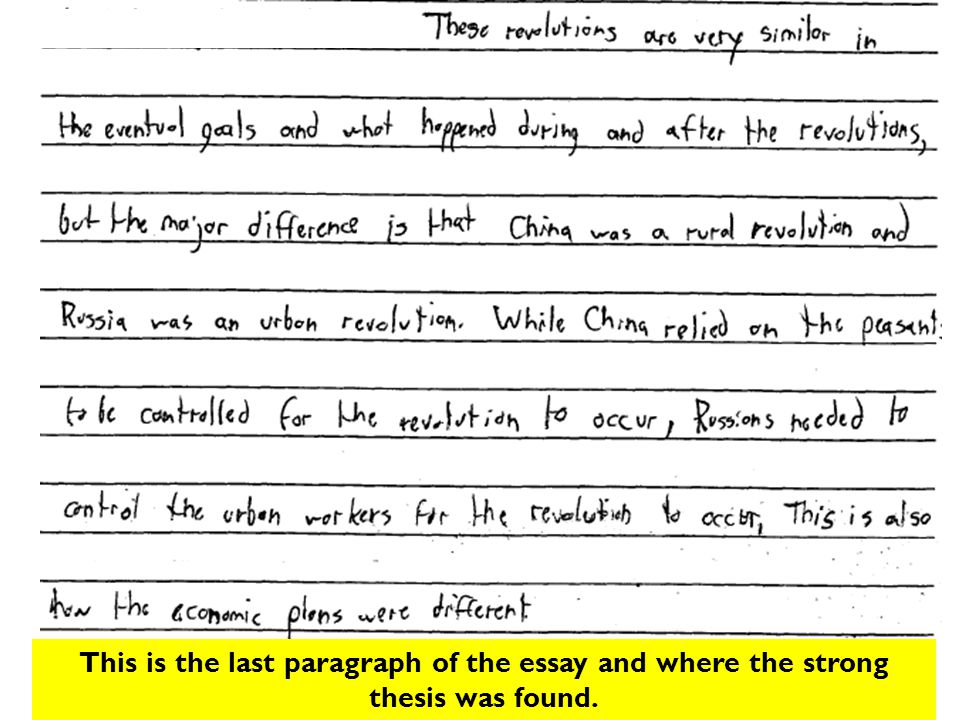 These revolutions are very similar in
the eventual goals and what happened during and after the revolutions,
but the major difference is that China was a rural revolution and
Russia was an urban revolution. While China relied on the peasants
to be controlled for the revolution to occur, Russians needed to
control the urban workers for the revolution to occur, This is also
how the economic plans were different.
This is the last paragraph of the essay and where the strong
thesis was found.